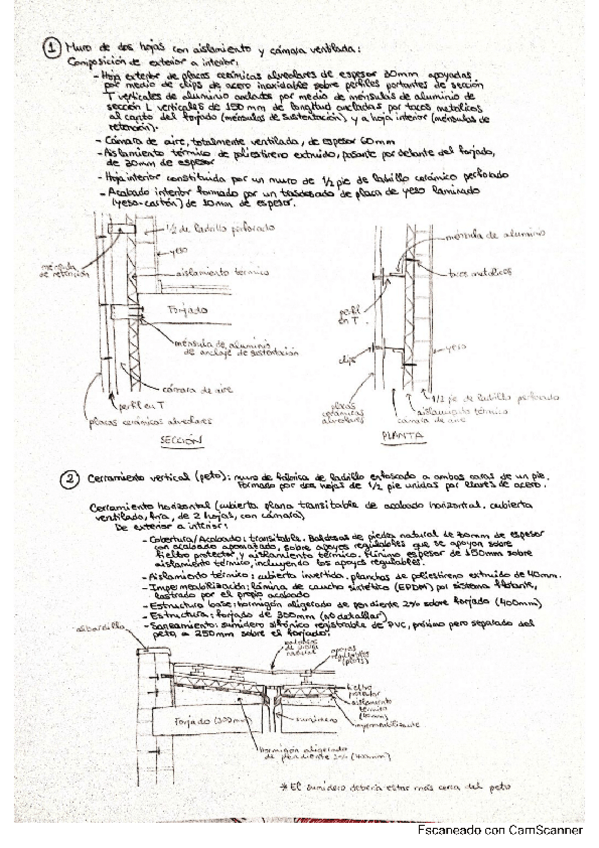 1 Muro de dos hojas con aislamiento y cámara ventilada:
Composición de exterior a interior:
- Hoja exterior de placas cerámicas alveolares de espesor 30mm apoyadas
por medio de clips de acero inoxidable sobre perfiles portantes de sección
T verticales de aluminio anclados por medio de ménsulas de aluminio de
sección L verticales de 150 mm de longitud ancladas por tacos metálicos
al canto del forjado (ménsulas de sustentación) y a hoja interior (ménsulas de
retención).
- Cámara de aire, totalmente ventilada, de espesor 60mm
- Aislamiento térmico de poliestireno extruido, pasante por delante del forjado,
de 30mm de espesor
- Hoja interior constituida por un muro de 1/2 pie de ladrillo cerámico perforado
- Acabado interior formado por un trasdosado de placa de yeso laminado
(yeso-cartón) de 10mm de espesor.
1/2 de ladrillo perforado
yeso
ménsula de retención
aislamiento térmico
Forjado
ménsula de aluminio
de anclaje de sustentación
cámara de aire
perfil en T
placas cerámicas alveolares
SECCIÓN
ménsula de aluminio
tacos metálicos
perfil
en T
clips
yeso
1/2 pie de ladrillo perforado
placas
cerámicas
alveolares
aislamiento térmico
cámara de aire
PLANTA
2 Cerramiento vertical (peto): muro de fábrica de ladrillo enfoscado a ambas caras de un pie.
Formado por dos hojas de 1/2 pie unidas por llaves de acero.
Cerramiento horizontal (cubierta plana transitable de acabado horizontal. cubierta
ventilada, fría, de 2 hojas, con cámara)
De exterior a interior:
- Cobertura/Acabado: transitable. Baldosas de piedra natural de 30mm de espesor
con acabado apomazado, sobre apoyos regulables que se apoyan sobre
fieltro protector y aislamiento térmico. Mínimo espesor de 150mm sobre
aislamiento térmico, incluyendo los apoyos regulables.
- Aislamiento térmico: cubierta invertida. planchas de poliestireno extruido de 40mm.
- Impermeabilización: lámina de caucho sintético (EPDM) por sistema flotante,
lastrado por el propio acabado
- Estructura base: hormigón aligerado de pendiente 2% sobre forjado (400mm)
- Estructura: forjado de 300mm (no detallar)
- Saneamiento: sumidero sifónico registrable de PVC, próximo pero separado del
peto a 250mm sobre el forjado.
albardilla
baldosas
de piedra
natural
apoyos
regulables
(plots)
fieltro
protector
aislamiento
térmico
impermeabilizante
Forjado (300mm)
sumidero
hormigón aligerado
de pendiente 2% (400mm)
* El sumidero debería estar más cerca del peto
Escaneado con CamScanner